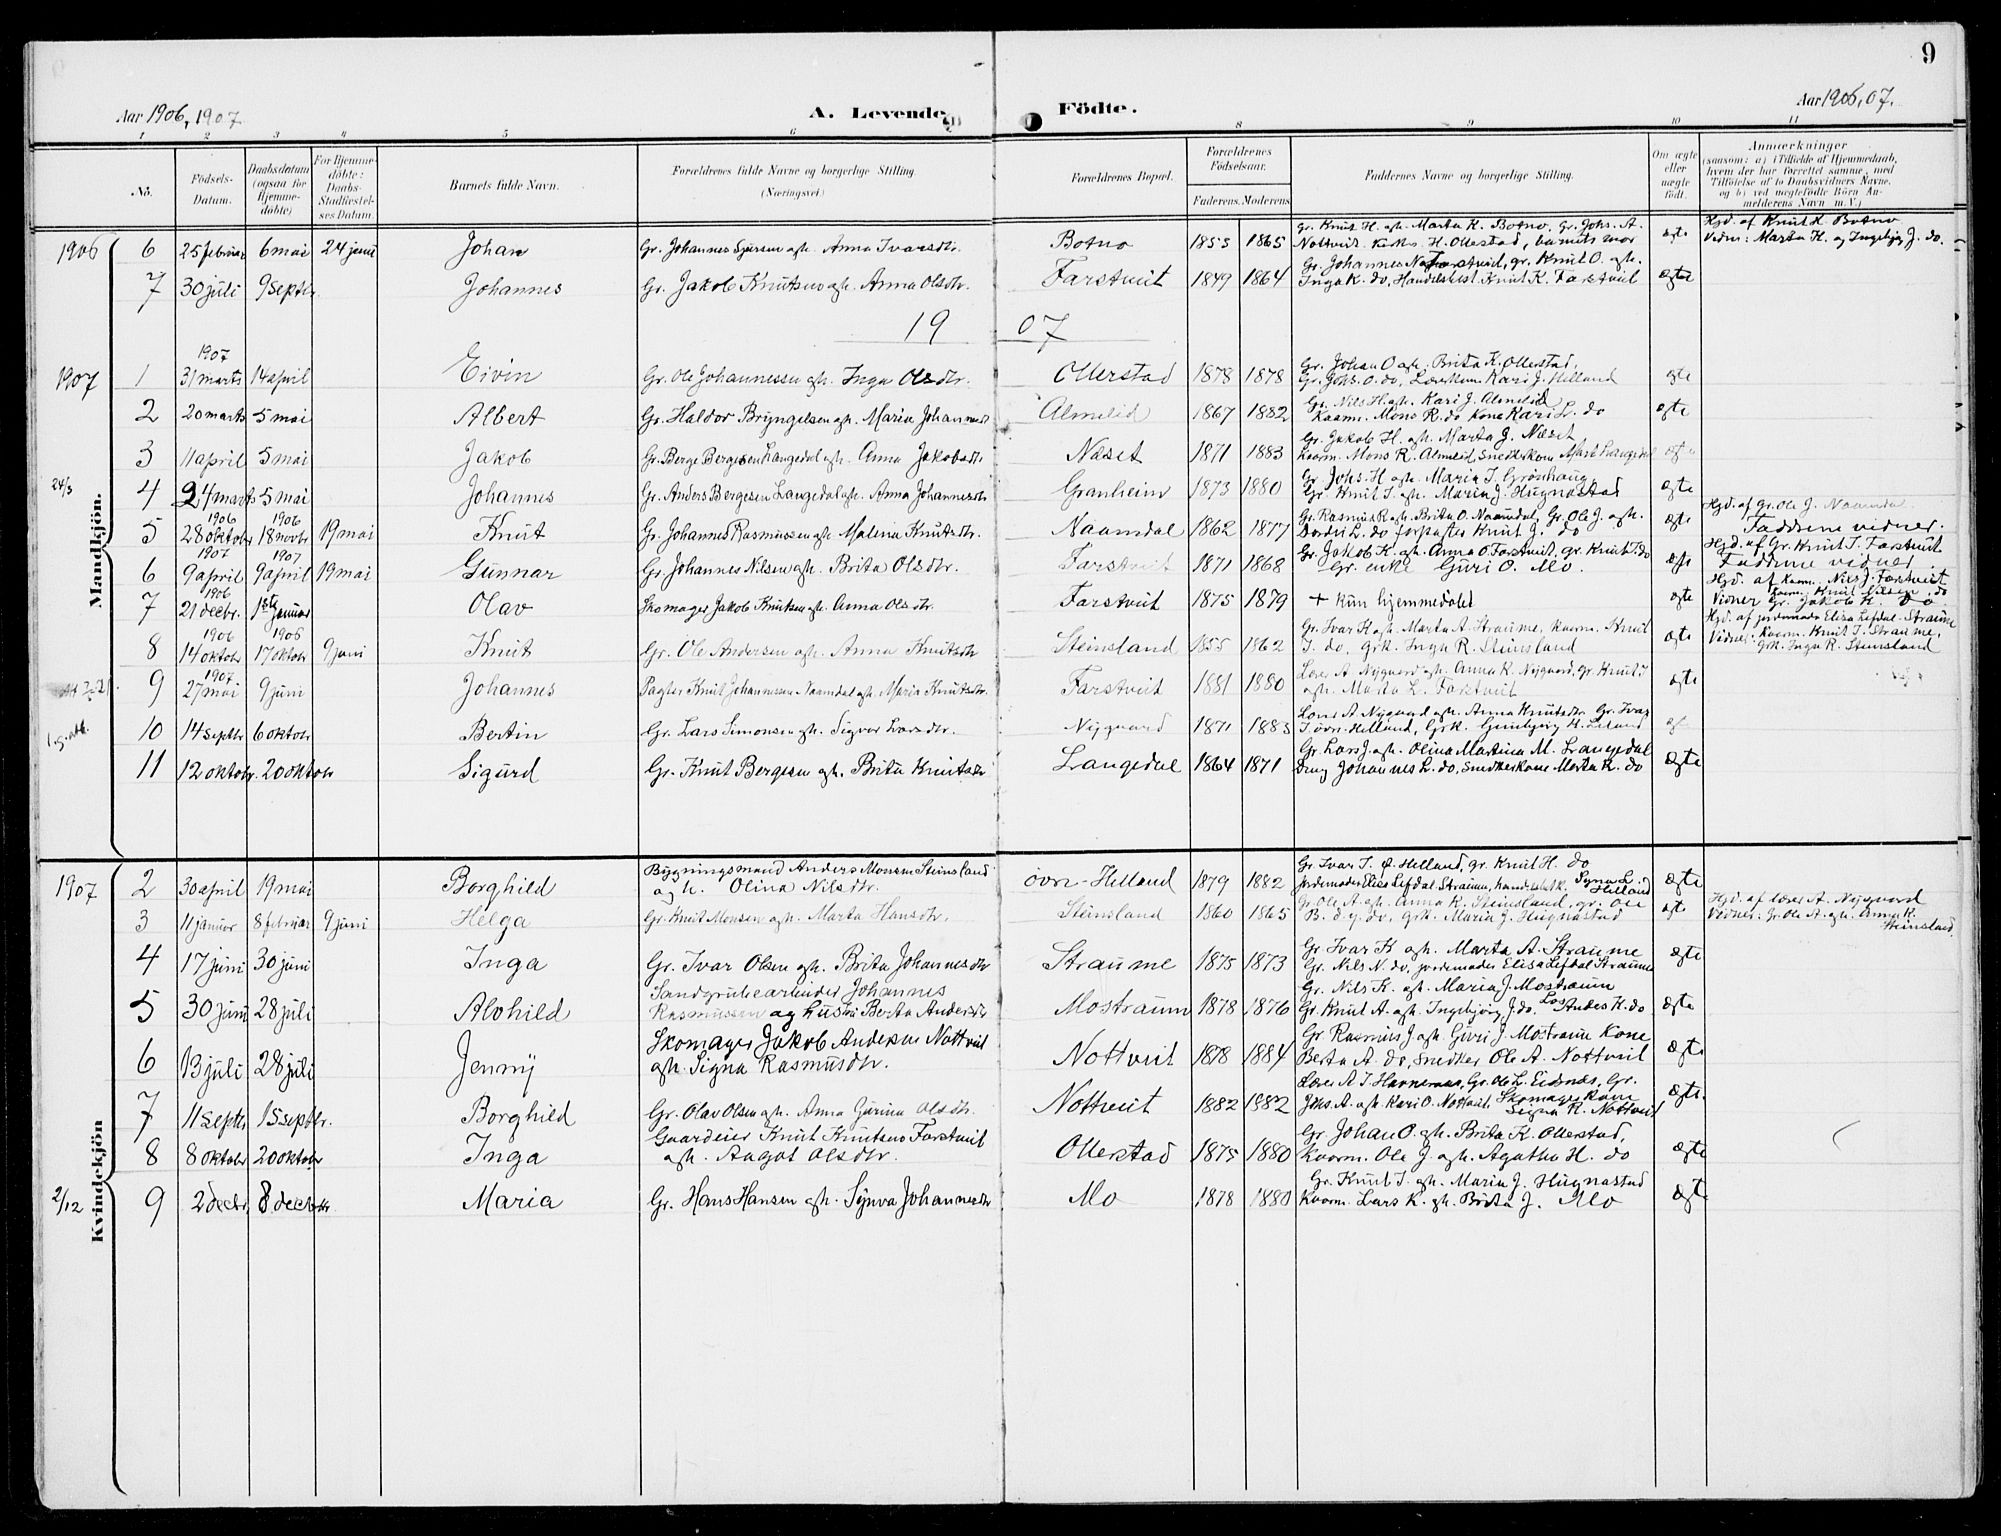 9
Aar 1906, 1907
A. Levende
Födte.
Aar 1906, 07.
1 2 3 4 5 6 8 9 10 11
No.
Födsels-Datum.
Daabsdatum (ogsaa for Hjemme-döbte)
For Hjemme-döbte: Daabs-Stadfæstel-ses Datum.
Barnets fulde Navn.
Forældrenes fulde Navne og borgerlige Stilling (Næringsvei)
Forældrenes Bopæl.
Forældrenes Födselsaar.
Faderens. Moderens
Faddernes Navne og borgerlige Stilling.
Om ægte eller uægte födt.
Anmærkninger
(saasom: a) i Tilfælde af Hjemmedaab, hvem der har forrettet samme, med Tilföielse af to Daabsvidners Navne, og b) ved uægtefödte Börn An-melderens Navn m. V.)
Mandkjön.
1906 6 25 februar 6 mai 24 juni Johan Gr. Johannes Sjursen gh. Anna Ivarsdtr. Botno 1855 1865 gr. Knut H. gh. Marta K. Botno, Gr. Johs. A. Nottveit H. Ollestad, barnets mor ægte Hjd. af Knut H. Botno Vidner: Marta H. og Ingebjg J. do.
7 30 juli 9 septbr. Johannes Gr. Jakob Knutsen gh. Anna Olsdtr. Farstveit 1849 1864 Gr. Johannes N. Farstveit, gr. Knut O. gh. Inga K. do, Handelsbest. Knut K. Farstveit ægte
1907
1907 1 1907 31 marts 14 april Eivin Gr. Ole Johannessen gh. Inga Olsdtr. Ollerstad 1878 1878 Gr. Johan O. gh. Brita K. Ollerstad, Gr. Johs. O. do, Lærerkone Kari J. Helland ægte
2 20 marts 5 mai Albert Gr. Haldor Bryngelsen gh. Maria Johannesdt Almelid 1867 1882 Gr. Nils H. gh. Kari J. Almelid Kaarm. Mons R. do Kone Kari L. do ægte
3 11 april 5 mai Jakob Gr. Berge Bergesen Langedal gh. Anna Jakobsdtr. Næset 1871 1883 Gr. Jakob H. gh. Marta J. Næset Kaarm. Mons R. Almelid, Snedkerkone Marta Langedal ægte
24/3 4 24 marts 5 mai Johannes Gr. Anders Bergesen Langedal gh. Anna Johannesdtr Granheim 1873 1880 Gr. Johs. H. gh. Maria I. Grönhaug, Gr. Knut I. gh. Maria J. Hugnastad ægte
5 1906 28 oktobr 1906 18 novbr 19 mai Knut Gr. Johannes Rasmussen gh. Malena Knutsdtr. Naamdal 1862 1877 Gr. Rasmus R. gh. Brita O. Naamdal, Gr. Ole J. gh. Bordii L. do forpagter Knut J. do ægte Hjd. af Gr. Ole J. Naamdal Faddrene vidner.
6 1907 9 april 1907 9 april 19 mai Gunnar Gr. Johannes Nilsen gh. Brita Olsdtr. Farstveit 1871 1868 Gr. Jakob K. gh. Anna O. Farstveit, gr. Knut I. do Gr. enke Guri O. Mo. ægte Hjd. af Gr. Knut I. Farstveit Faddrene vidner
7 1906 21 decbr. 1ste januar Olav Skomager Jakob Knutsen gh. Anna Olsdtr. Farstveit 1875 1879 + kun hjemmedöbt ægte Hjd. af Kaarm. Nils J. Farstveit Vidner Kaarm. Knut Nilsen do Gr. Jakob K. do
8 1906 14 oktobr 1906 17 oktobr 9 juni Knut Gr. Ole Andersen gh. Anna Knutsdtr Steinsland 1855 1862 Gr. Ivar K. gh. Marta A. Straume, Kaarm. Knut I. do, Grk. Inga R. Steinsland ægte Hjd. af jordemoder Elisa Lefdal-Straume Vidner: Kaarm. Knut I. Straume, Grk. Inga R. Steinsland
9 1907 27 mai 9 juni Johannes Pagter Knut Johannessen Naamdal gh. Maria Knutsdtr. Farstveit 1881 1880 Lærer A. Nygaard gh. Anna K. Nygaard, gr. Knut I gh. Marta L. Farstveit ægte
10 14 septbr 6 oktobr Bertin Gr. Lars Simonsen gh. Sigvor Larsdtr. Nygaard 1871 1883 Lærer A. Nygaard gh. Anna Knutsdtr Gr. Ivar I. övre-Helland, Grk. H.
11 12 oktobr. 20 oktobr Sigurd Gr. Knut Bergesen gh. Brita Knutsdtr Langedal 1864 1871 Gr. Lars J. gh. Olina Martina M. Langedal Dreng Johannes L. do, Snedkerkone Marta K. do ægte
Kvindekjön
1907 2 30 april 19 mai Borghild Bygningsmand Anders Monsen Steinsland og h. Olina Nilsdtr. övre-Helland 1879 1882 Gr. Ivar I. ö. Helland, gr. Knut H. do Jordemoder Elisa Lefdal Straume, handelsbst k. Synva L. Helland ægte
3 11 januar 8 februar 9 juni Helga Gr. Knut Monsen gh. Marta Hansdtr. Steinsland 1860 1865 Gr. Ole A. gh. Anna K. Steinsland, gr. Ole B. d.y. do, grk. Maria J. Hugnastad ægte Hjd. af lærer A. Nygaard Vidner: Gr. Ole A. gh. Anna K. Steinsland.
4 17 juni 30 juni Inga Gr. Ivar Olsen gh. Brita Johannesdtr Straume 1875 1873 Gr. Ivar K. gh. Marta A. Straume Gr. Nils N. do, jordemoder Elisa Lefdal Straume ægte
5 30 juni 28 juli Alvhild Sandgrubearbeider Johannes Rasmussen og hustru Berta Andersdtr Mostraum 1878 1876 Gr. Nils K. gh. Maria J. Mostraum Gr. Knut A. gh. Ingebjörg J. do. Los Anders K. do ægte
6 13 juli 28 juli Jenny Skomager Jakob Andersen Nottveit gh. Signa Rasmusdtr. Nottveit 1878 1884 Gr. Rasmus J. gh. Guri J. Mostraum Kone Berta A. do, Snedker Ole A. Nottveit ægte
7 11 septbr 15 septbr. Borghild Gr. Olav Olsen gh. Anna Gurina Olsdtr. Nottveit 1882 1882 Lærer A. I. Gr. Ole L. Eidsnes, Gr. Johs. A. gh. Kari O. Nottveit. Skomagerkone Signa R. Nottveit ægte.
8 8 oktobr 20 oktobr Inga Gaardeier Knut Knutsen Farstveit gh. Aagot Olsdtr. Ollerstad 1875 1880 Gr. Johan O. gh. Brita K. Ollerstad, Kaarm. Ole J. gh. Agatha H. do ægte
2/12 9 2 decbr. 8 decbr Maria Gr. Hans Hansen gh. Synva Johannesdtr Mo 1878 1880 Gr. Knut I. gh. Maria J. Hugnastad Kaarm. Lars K. gh. Brita J. Mo ægte